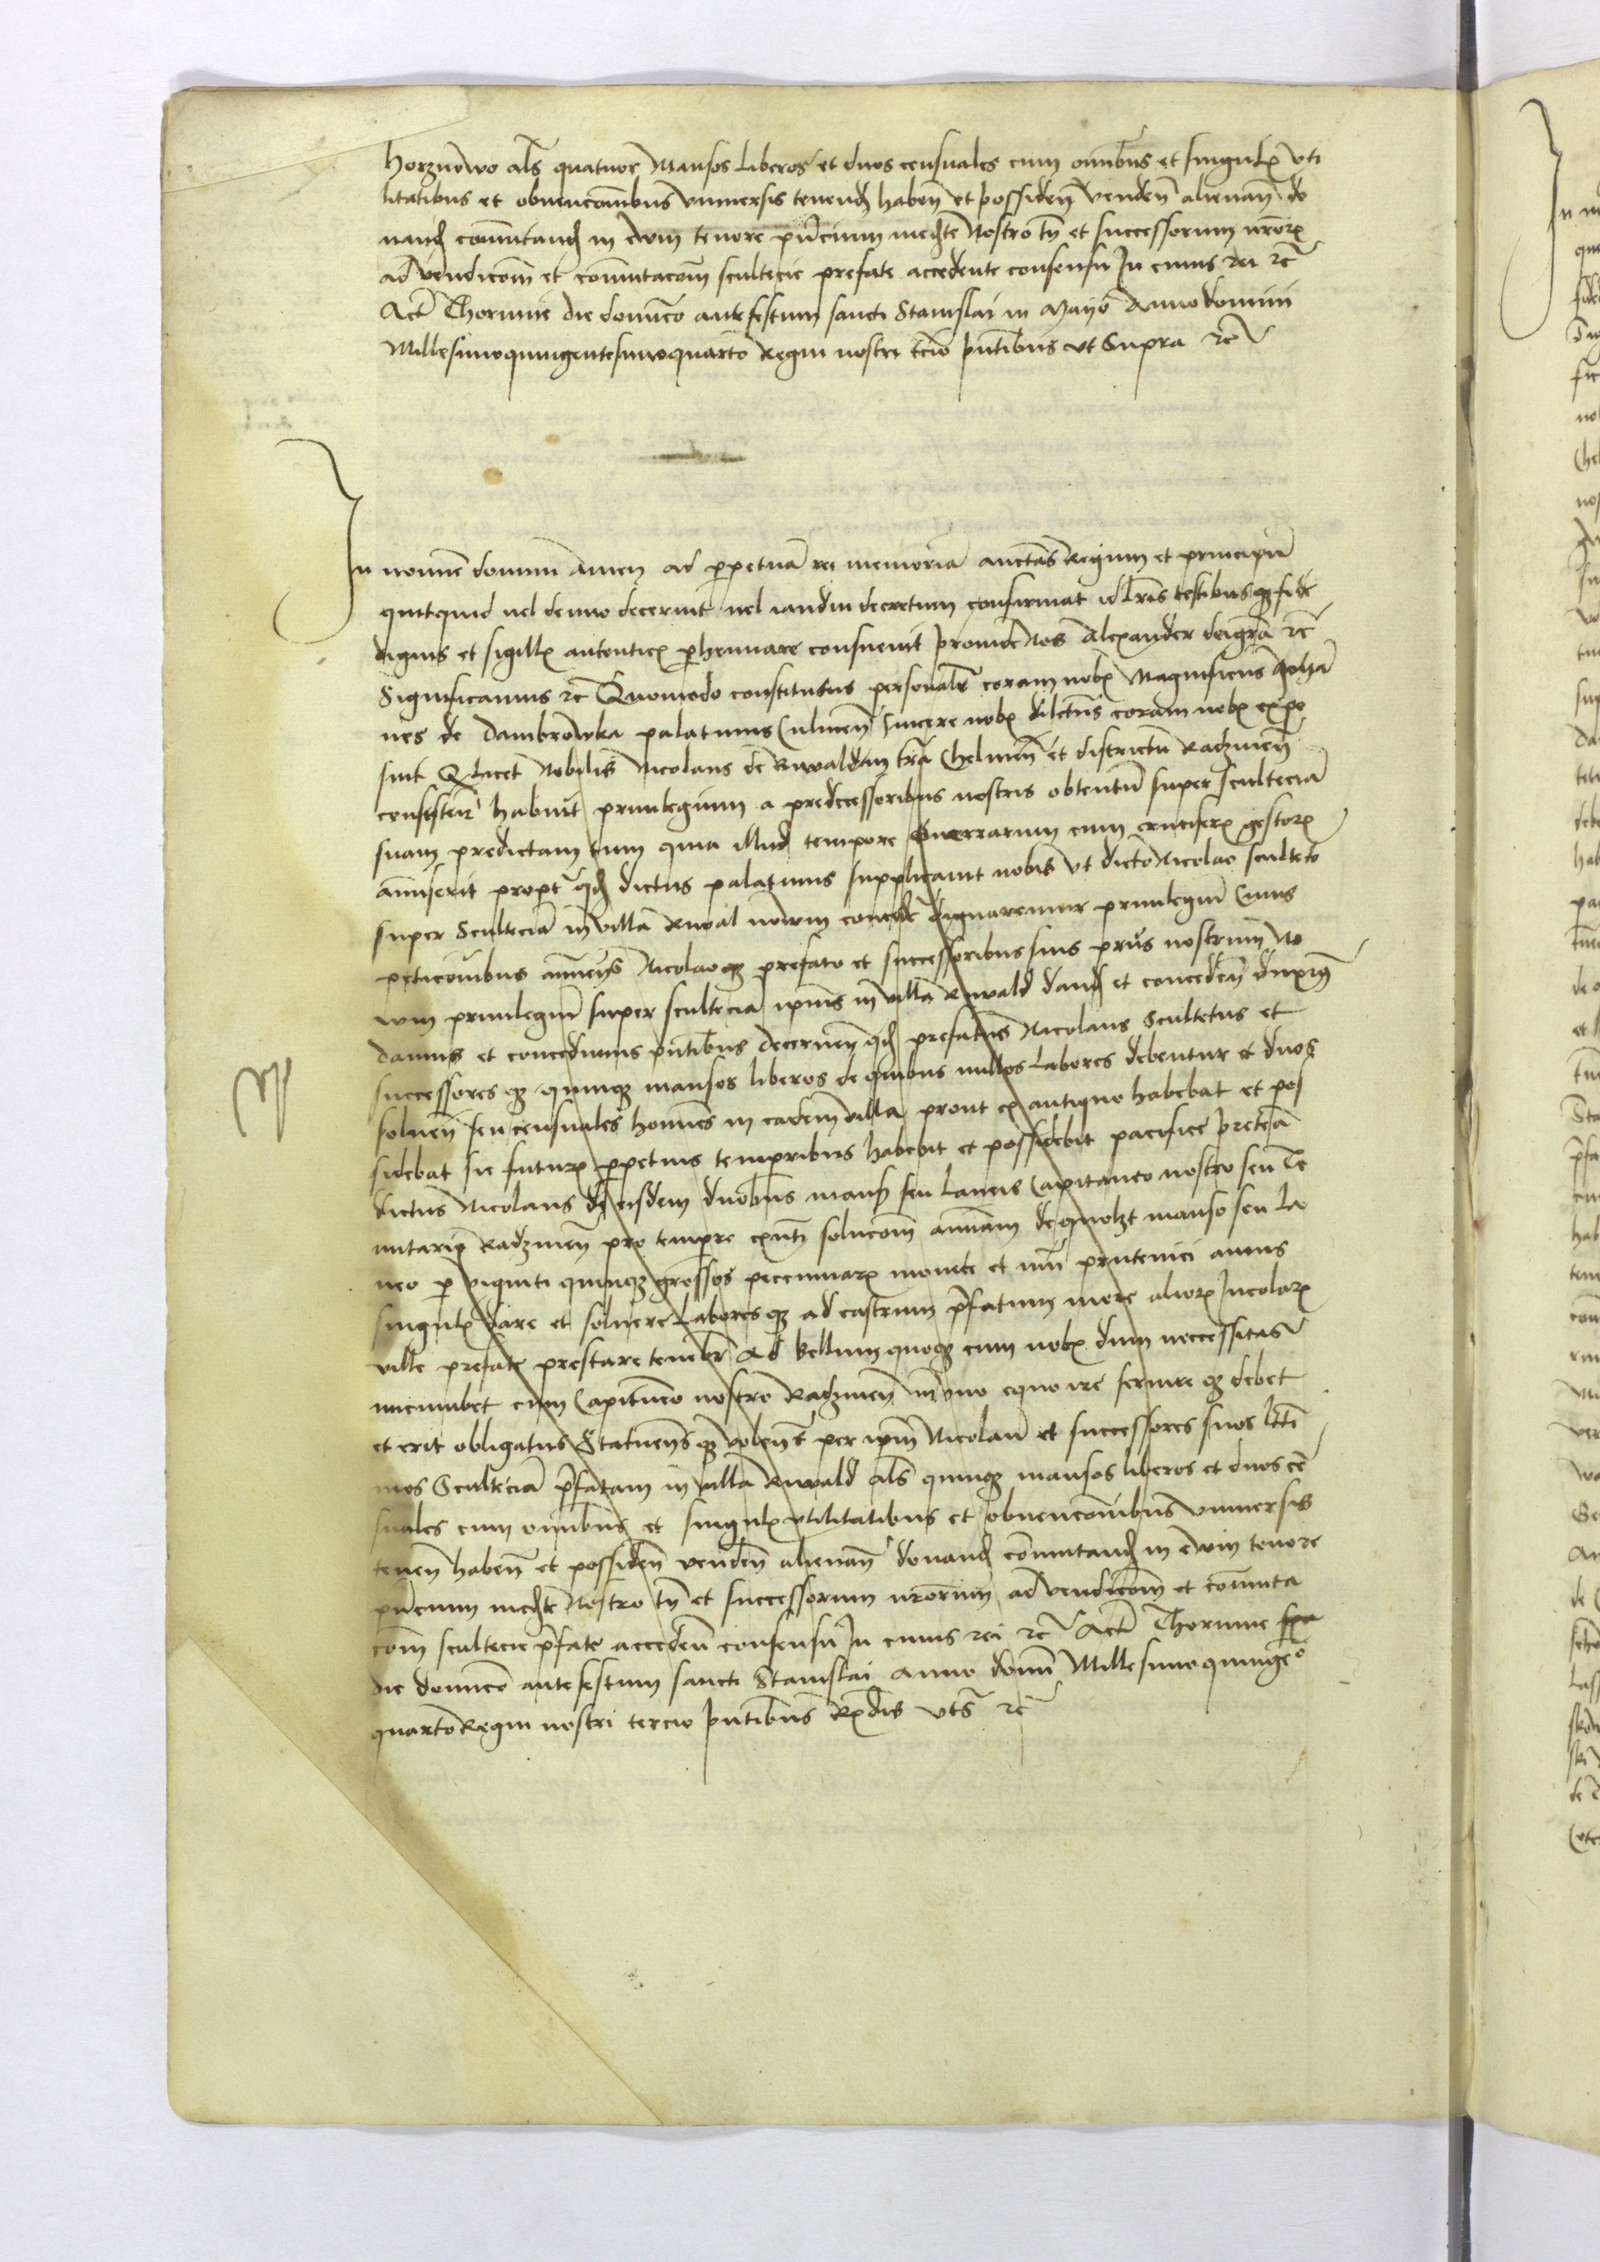 horznowo als quatuor Mansos Liberos et duos censuales cum omibus et singulis uti
litatibus et obuencoibus vniuersis tenend haben et possiden venden alienan do
nand commutand in ewm tenore pncium medte Nostro tn et successorum nrorum
ad vendicom et comutacom scultecie prefate accedente consensu In cuius rei rc
Act Thorunie die dominco ante festum sancti Stanislai in Mayo Anno domini
Millesimoquingentesimoquarto Regni nostri tcio pntibus ut Supra rc
In nomine domini Amen ad perpetua rei memoria auctas Regum et principu
quitquid uel denuo decernit uel iandiu decretum confirmat id lris testibusqz fide
dignis et sigillis autenticis perhennare consueuit proinde Nos Alexander dei gra rc
Significamus rc Quomodo constitutus personalr coram nobis Magnificus
nes de dambrowka palatinus Culmen sincere nobis dilectus coram nobis expo
suit Q licet Nobilis Nicolaus de Ruwald in tra Chelmen et districtu Radzinen
consisten habuit priuilegium a predecessoribus nostris obtentu super scultecia
suam predictam tum quia illud tempore Guerrarum cum cruciferis gestorum
amiserit propt qd dictus palatinus supplicauit nobis ut dicto Nicolao sculteto
super Scultecia in villa Ruwal nowm concede dignaremur priuilegiu Cuius
peticoibus annuens Nicolaoqz prefato et successoribus suis prius nostrum No
wm priuilegiu super scultecia ipius in villa Ruwald dand et conceden duximus
damus et concedimus pntibus decernen qd prefatus Nicolaus Scultetus et
successores qz quinqz mansos liberos de quibus nullos labores debentur et duos
soluen seu censuales homines in eadem villa prout ex antiquo habebat et pos
sidebat sic futuris perpetuis temporibus habebit et possidebit pacifice preterea
dictus Nicolaus de eisdem duobus mansis seu laneis Capitaneo nostro seu Te
nutario Radzinen pro tempore exnti solucom annuam de quolzt manso seu la
neo per viginti quinqz grossos peccuniarum monete et nui prutenici annis
singulis dare et soluere laboresqz ad castrum pfatum more aliorum Incolarum
ville prefate prestare tenebr Ad bellum quoqz cum nobis dum neccessitas
incumbet cum Capitaneo nostro Radzinen in vno equo ire seruireqz debet
et erit obligatus Statuensqz volens per ipm Nicolau et successores suos ltti
mos Scultecia pfatam in villa Ruwald als quinqz mansos liberos et duos cen
suales cum omibus et singulis utilitatibus et obuencoibus vniuersis
tenen haben et possiden venden alienan donand comutand in ewm tenore
pncium medte Nostro tn et successorum nrorum ad vendicom et comuta
com scultecie pfate acceden consensu In cuius rei rc Act Thorunie
die dominco ante festum sancti Stanislai anno domi Millesimoquingeo
quarto Regni nostri tercio pntibus Rndis uts rc